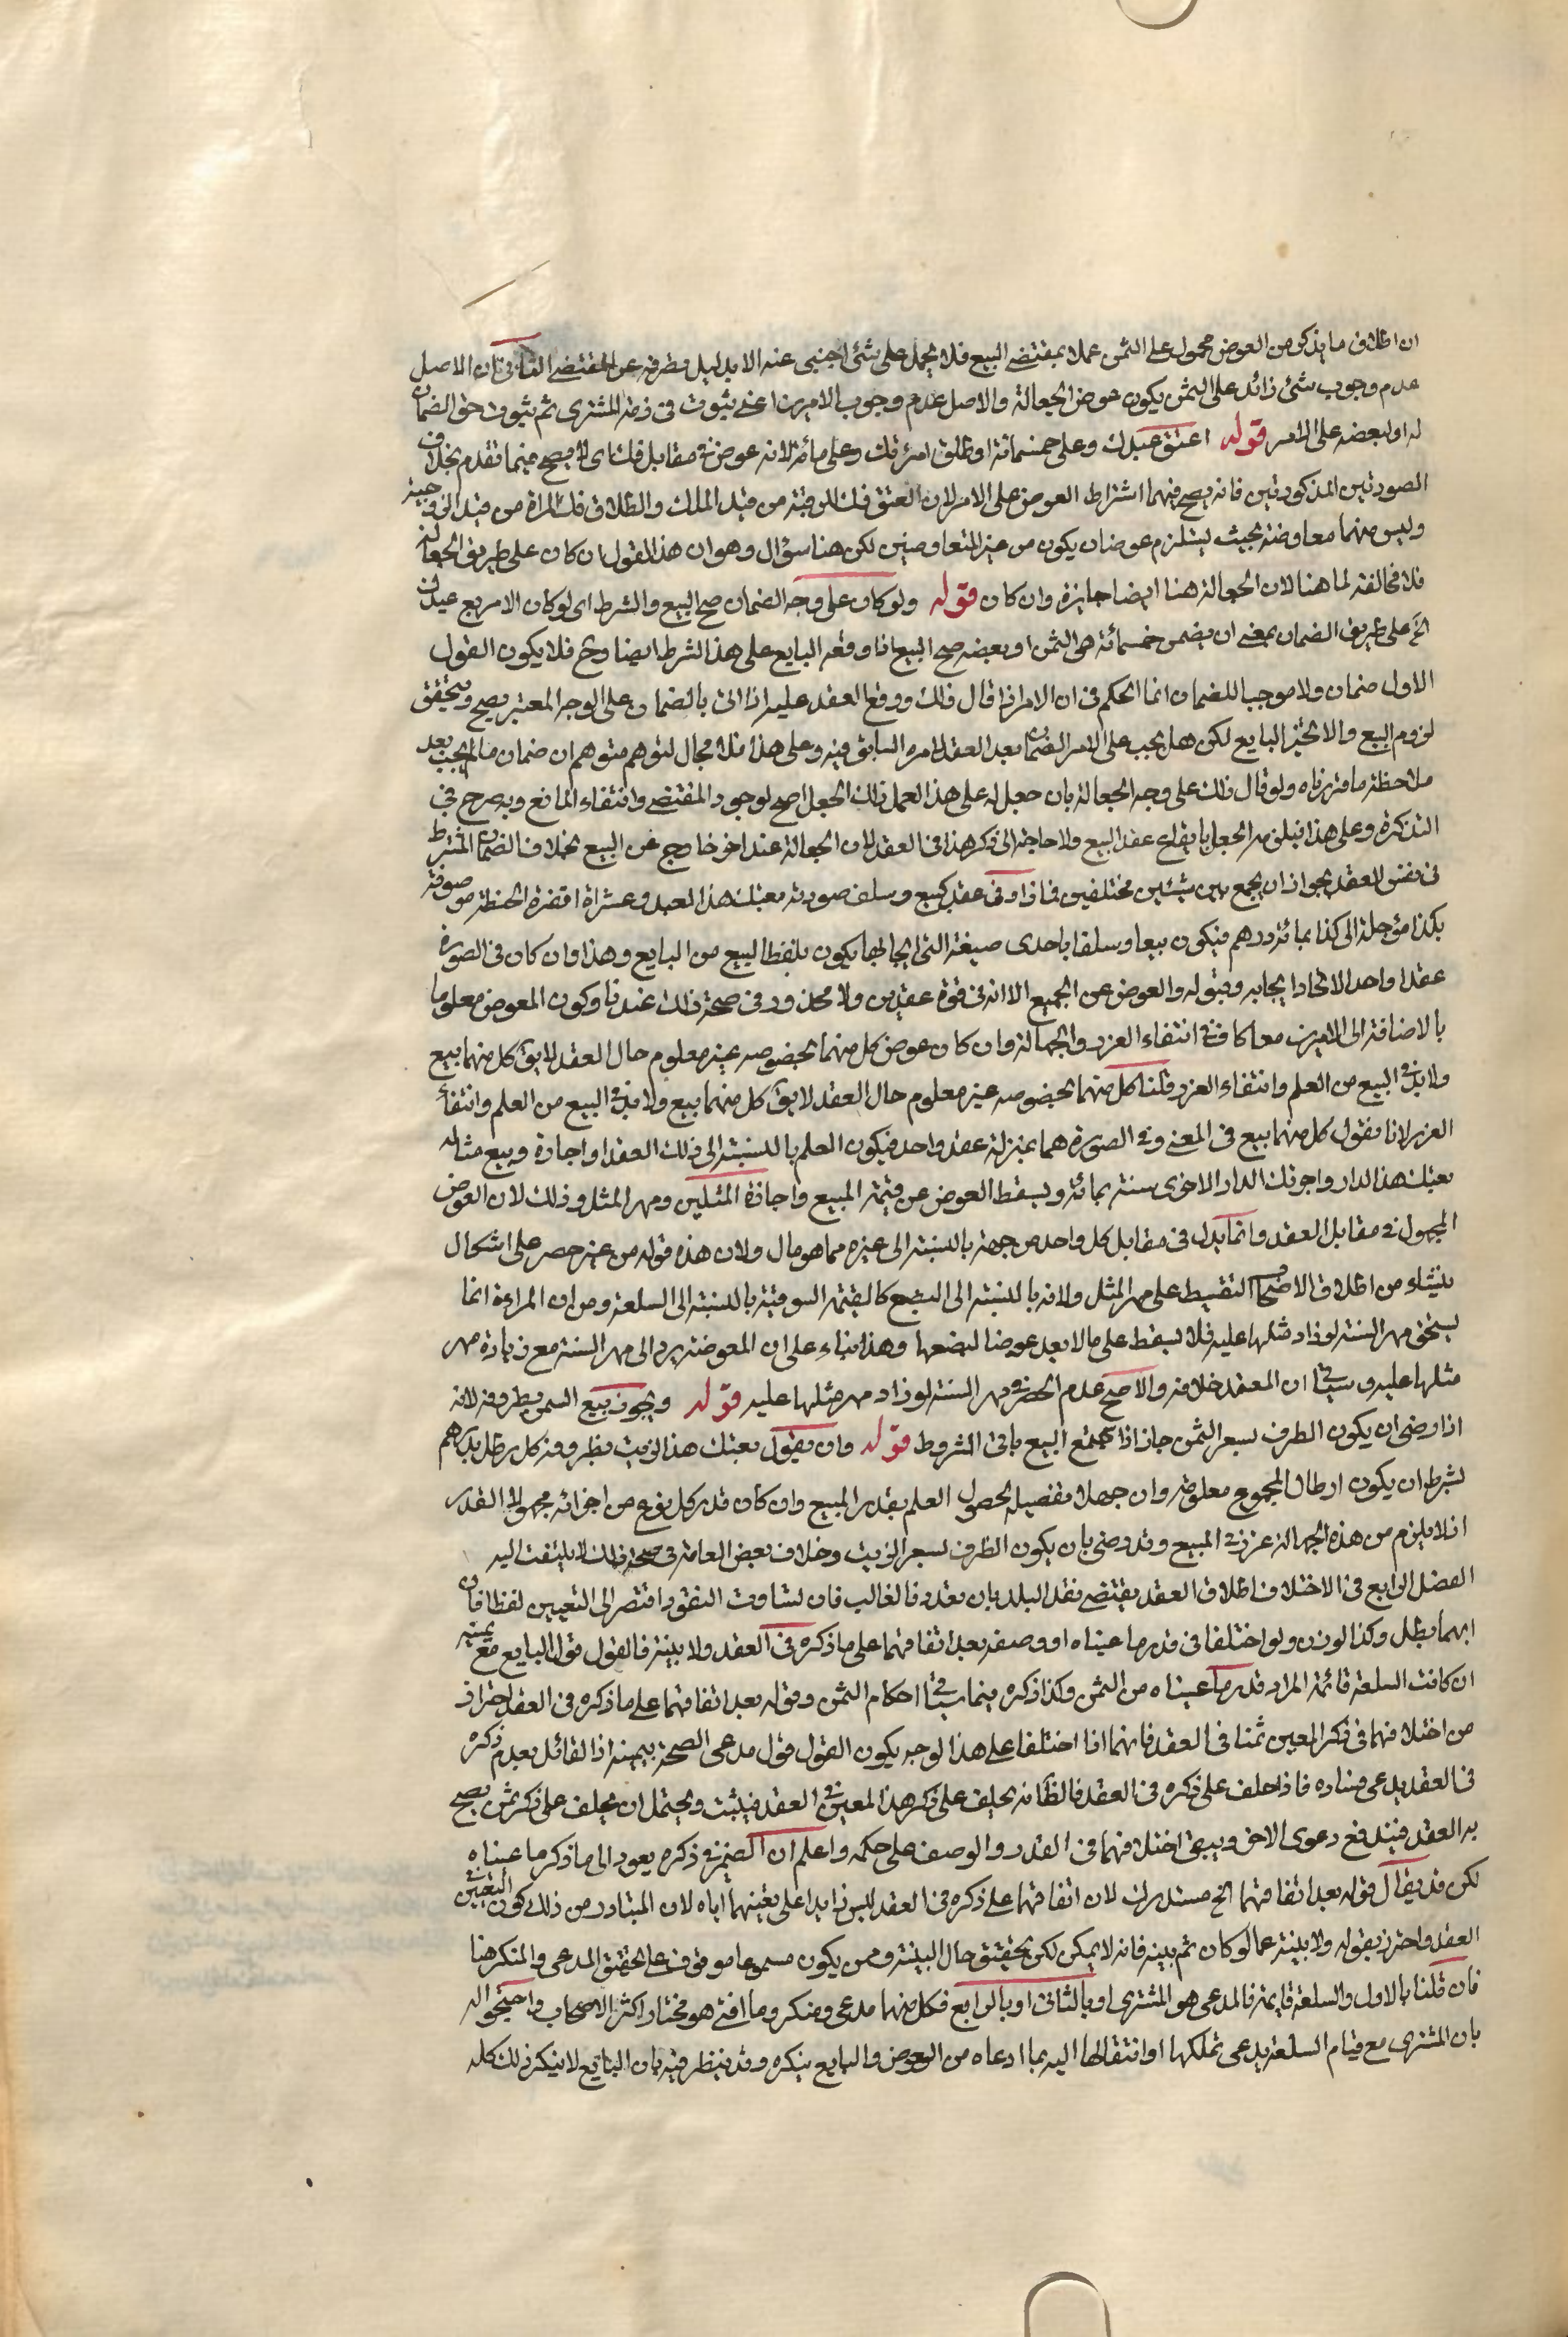 ان اطلاق ما يذكر من العوض محمول على الثمن عملا بمقتضى البيع فلا يحمل على شئ اجنبى عنه الا بدليل يطرفه عن المقتضى الثانى ان الاصل
عدم وجوب شئ زائد على الثمن يكون عوض الجعالة والاصل عدم وجوب الامرين اعنى ثبوت فى ذمة المشترى ثم ثبوت حق الضمان
له او لبعضه على الامر قوله اعتق عبدك وعلى خمسمائة او طلق امرئتك وعلى مائة لانه عوض فى مقابل فك اى لانه يصح فيما تقدم بخلاف
الصورتين المذكورتين فانه يصح فيهما اشتراط العوض على الامر لان العتق فك الرقبة من قيد الملك والطلاق فك المراة من قيد الزوجية
وليس فيهما معاوضة بحيث يستلزم عوضا ان يكون من غير المتعاوضين لكن هنا سؤال وهو ان هذا القول ان كان على طريق الجعالة
فلا مخالفة لما هنا لان الجعالة هنا ايضا جايزة وان كان قوله ولو كان على وجه الضمان صح البيع والشرط اى لو كان الامر بع عبدك
الخ على طريق الضمان بمعنى ان يضمن خمسمائة هى الثمن او بعضه صح البيع اذا وقعه البايع على هذا الشرط ايضا وح فلا يكون القول
الاول ضمان ولا موجبا للضمان انما الحكم فى ان الامر اذا قال ذلك ووقع العقد عليه اذا اتى بالضمان على الوجه المعتبر يصح ويتحقق
لزوم البيع والا تخير البايع لكن هل يجب على الامر الضمان بعد العقد لامره السابق فيه وعلى هذا فلا مجال لتوهم متوهم ان ضمان ما لم يجب بعد
ملاحظة ما قررناه ولو قال ذلك على وجه الجعالة بان جعل له على هذا العمل ذلك الجعل صح لوجود المقتضى وانتفاء المانع وبه صرح فى
التذكرة وعلى هذا فيلزمه الجعل بايقاع عقد البيع ولا حاجة الى ذكر هذا فى العقد لان الجعالة عند اخر خارج عن البيع بخلاف الضمان المشترط
فى نفس العقد يجوز ان يجمع بين شيئين مختلفين فما زاد فى عقد كبيع وسلف صورته بعتك هذا العبد وعشرة اقفزة الحنطة موصوفة
بكذا مؤجلة الى كذا بمائة درهم فيكون بيعا وسلفا باحدى صيغة التى ايجابها يكون بلفظ البيع من البايع وهذا وان كان فى الصورة
عقدا واحدا لاتحاد ايجابه وقبوله والعوض عن الجميع الا انه فى قوة عقدين ولا محذور فى صحة ذلك عندنا وكون المعوض معلوما
بالاضافة الى الامرين معا كاف فى انتفاء الغرر والجهالة وان كان عوض كل منهما بخصوصه غير معلوم حال العقد لا يق كل منهما بيع
ولا بد فى البيع من العلم وانتفاء الغرر قلنا كل منهما بخصوصه غير معلوم حال العقد لا يق كل منهما بيع ولا بد فى البيع من العلم وانتفاء
الغرر لانا نقول كل منهما بيع فى المعنى وفى الصورة هما بمنزلة عقد واحد فيكون العلم بالنسبة الى ذلك العقد او اجارة وبيع مثاله
بعتك هذا الدار واجرتك الدار الاخرى سنة بمائة ويسقط العوض عن قيمة المبيع واجازة المثلين ومهر المثل وذلك لان العوض
المجهول فى مقابل العقد وانما يدل فى مقابل كل واحد من جهة بالنسبة الى غيره مما هو مال ولان هذه قوله من غير حصر على اشكال
ينشاء من اطلاق الاصحاب التقسيط على مهر المثل ولانه بالنسبة الى البضع كالقيمة السوقية بالنسبة الى السلعة ومن ان المراءة انما
يستحق مهر السنة لو زاد مثلها عليه فلا يسقط على ما لا يعد عوضا لبضعها وهذا بناء على ان المعوضة يرد الى مهر السنة مع زيادة مهر
مثلها عليه وسياتى ان المعتمد خلافه والاصح عدم الحصر فى مهر السنة لو زاد مهر مثلها عليه قوله ويجوز بيع السمن بظروفه لانه
اذا رضى ان يكون الظرف بسعر الثمن جاز اذا اجتمع البيع باقى الشروط قوله وان يقول بعتك هذا الزيت بظروفه كل رطل بدرهم
بشرط ان يكون ارطال المجموع معلومة وان جهلا تفصيله لحصول العلم بقدر المبيع وان كان قدر كل نوع من اجزائه مجهول القدر
اذ لا يلزم من هذه الجهالة غرر فى المبيع وقد رضى بان يكون الظرف بسعر الزيت وخلاف بعض العامة فى صحة ذلك لا يلتفت اليه
الفصل الرابع فى الاختلاف اطلاق العقد يقتضى نقد البلد بان تعدد فالغالب فان تساوت النقود افتقر الى التعيين لفظا فان
ابهما بطل وكذا لوزن ولو اختلفا فى قدر ما عيناه او وصفه بعد اتفاقهما على ما ذكره فى العقد ولا بينة فالقول قول البايع مع يمينه
ان كانت السلعة قائمة المراد قدر ما عيناه من الثمن وكذا ذكره فيما ياتى فى احكام الثمن وقوله بعد اتفاقهما على ما ذكره فى العقد احتراز
من اختلافهما فى ذكر المعين ثمنا فى العقد فانهما اذا اختلفا على هذا الوجه يكون القول قول مدعى الصحة بيمينه اذ القائل بعدم ذكره
فى العقد يدعى فساده فاذا حلف على ذكره فى العقد فالظ انه يحلف على ذكر هذا المعين فى العقد فيثبت ويحتمل ان يحلف على ذكر ثمن يصح
به العقد فيندفع دعوى الاخر ويبقى اختلافهما فى القدر والوصف على حكمه واعلم ان الضمير فى ذكره يعود الى ما ذكر ما عيناه
لكن قد يقال قوله بعد اتفاقهما الخ مستدرك لان اتفاقهما على ذكره فى العقد ليس زايدا على تعينهما اياه لان المتبادر من ذلك كون التعيين
العقد واحترز بقوله ولا بينة عما لو كان ثم بينة فانه لا يمكن لكن تحقيق حال البينة وممن يكون مسموعا موقوف على تحقيق المدعى والمنكر هنا
فان قلنا بالاول والسلعة قايمة فالمدعى هو المشترى او بالثانى او بالرابع فكل منهما مدعى ومنكر وما افتى هو مختار اكثر الاصحاب واحتجوا له
بان المشترى مع قيام السلعة يدعى تملكها او انتقالها اليه بما ادعاه من العوض والبايع ينكره وقد ينظر فيه بان البايع لا ينكر ذلك كله